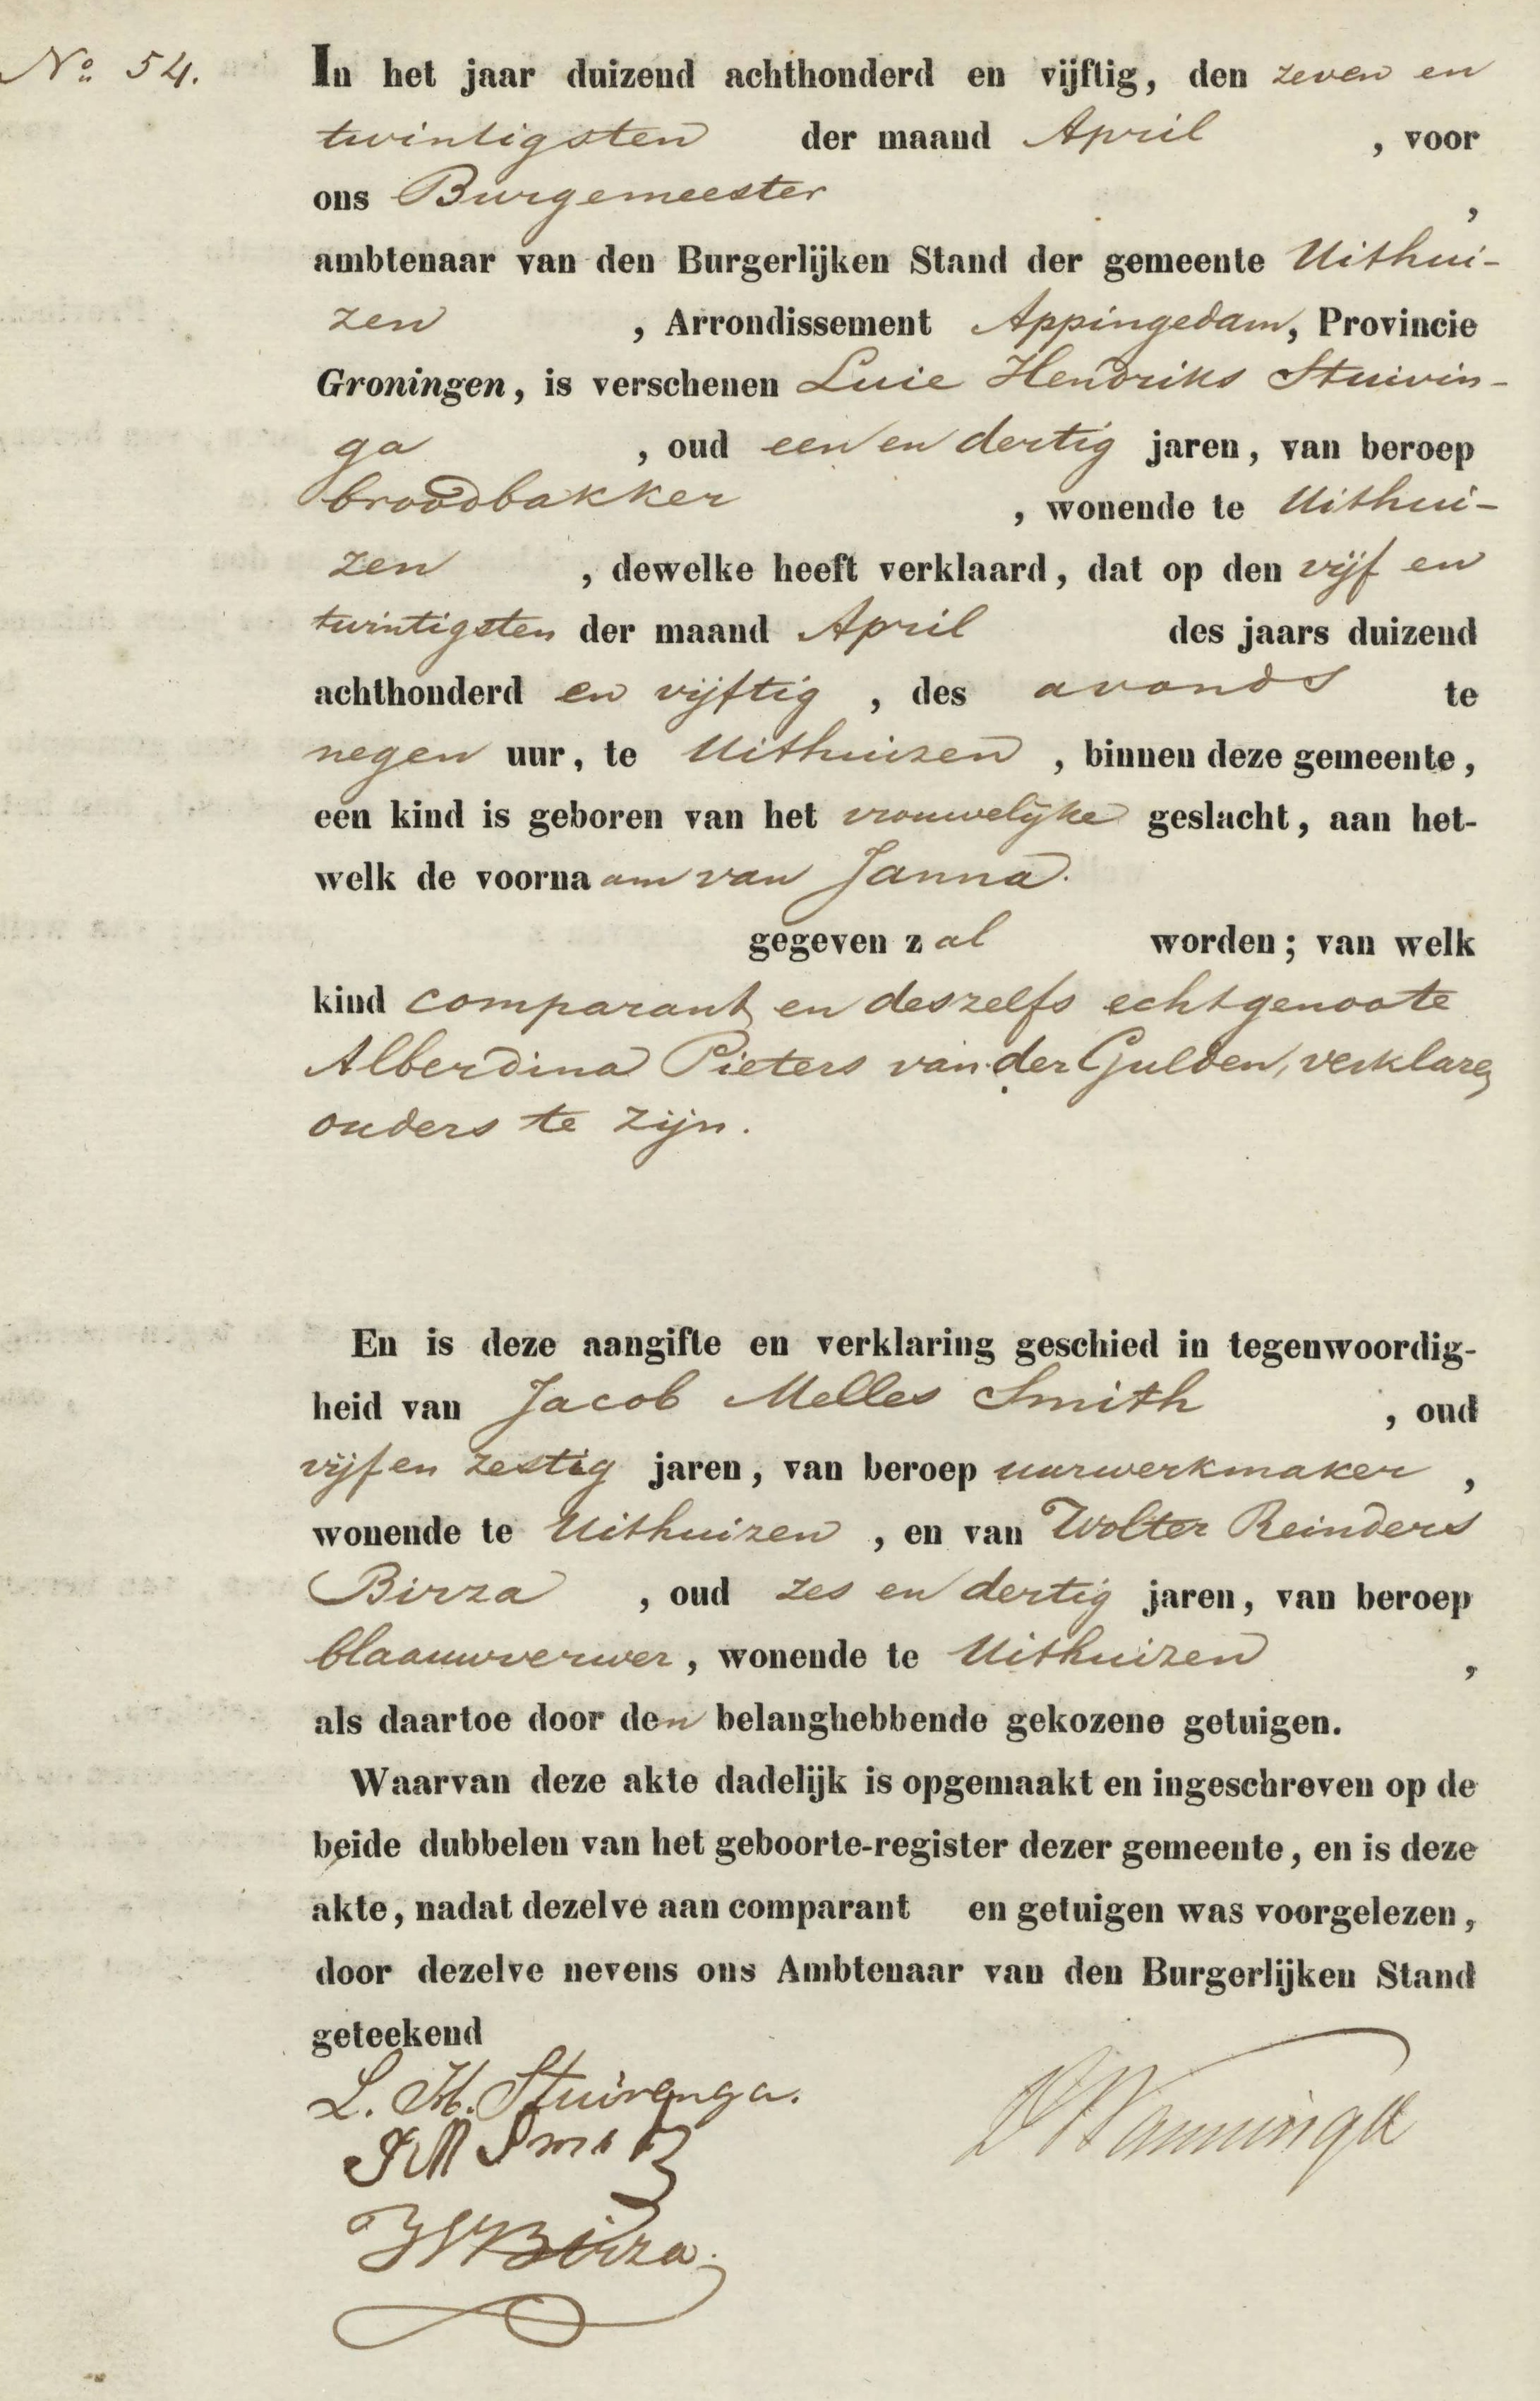 No. 54.
In het jaar duizend achthonderd en vijftig, den zeven en
twintigsten der maand April , voor
ons Burgemeester ,
ambtenaar van den Burgerlijken Stand der gemeente Uithui-
zen , Arrondissement Appingedam, Provincie
Groningen, is verschenen Luie Hendriks Stuivin-
ga , oud een en dertig jaren, van beroep
broodbakker , wonende te Uithui-
zen , dewelke heeft verklaard, dat op den vijf en
twintigsten der maand April des jaars duizend
achthonderd en vijftig , des avonds te
negen uur, te Uithuizen , binnen deze gemeente,
een kind is geboren van het vrouwelijke geslacht, aan het-
welk de voornaam van Janna.
gegeven zal worden; van welk
kind comparant en deszelfs echtgenoote
Alberdina Pieters van der Gulden, verklaren
ouders te zijn.
En is deze aangifte en verklaring geschied in tegenwoordig-
heid van Jacob Melles Smith , oud
vijf en zestig jaren, van beroep uurwerkmaker ,
wonende te Uithuizen , en van Wolter Reinders
Birza , oud zes en dertig jaren, van beroep
blaauwverwer, wonende te Uithuizen ,
als daartoe door den belanghebbende gekozene getuigen.
Waarvan deze akte dadelijk is opgemaakt en ingeschreven op de
beide dubbelen van het geboorte-register dezer gemeente, en is deze
akte, nadat dezelve aan comparant en getuigen was voorgelezen,
door dezelve nevens ons Ambtenaar van den Burgerlijken Stand
geteekend
L. H. Stuivenga.
J M Smit
W R Birza.